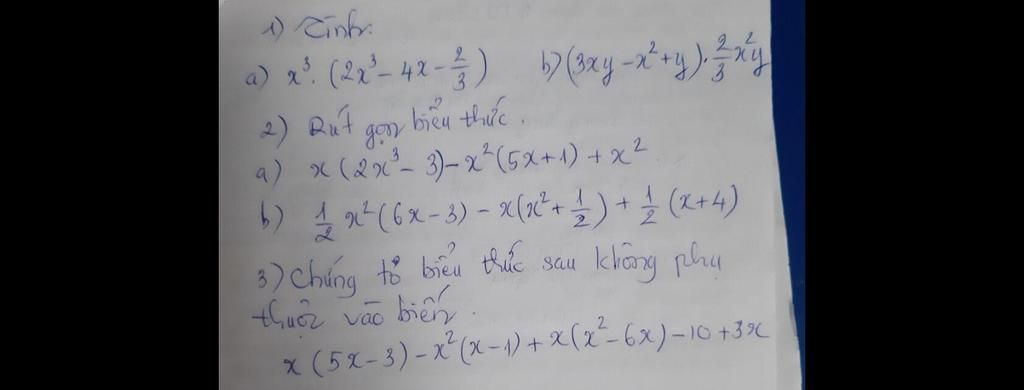 1) Tính:
a) x³. (2x³ - 4x - 2/3) b) (3xy - x² + y). 2/3 x²y
2) Rút gọn biểu thức.
a) x (2x³ - 3) - x² (5x+1) + x²
b) 1/2 x² (6x - 3) - x(x² + 1/2) + 1/2 (x+4)
3) Chứng tỏ biểu thức sau không phụ
thuộc vào biến.
x (5x - 3) - x² (x - 1) + x(x² - 6x) - 10 + 3x